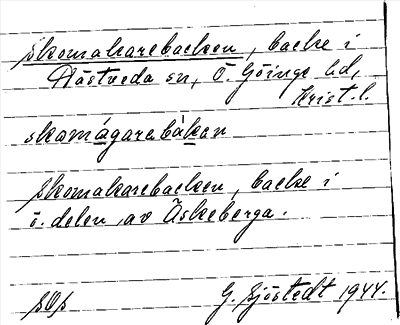 Skomakarebacken, backe i
Hästveda sn, Ö. Göinge hd,
Krist. l.
skomágarabákan
Skomakarebacken, backe i
ö. delen av Äskeberga.
G. Sjöstedt 1944.